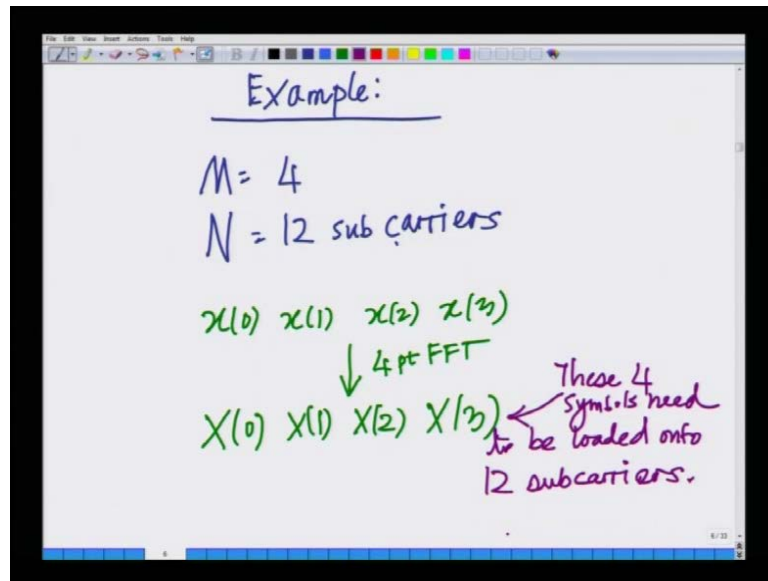 File Edit View Insert Actions Tools Help
Example:
M = 4
N = 12 sub carriers
x(0) x(1) x(2) x(3)
↓ 4 pt FFT
X(0) X(1) X(2) X(3)
These 4
symbols need
to be loaded onto
12 subcarriers.
6